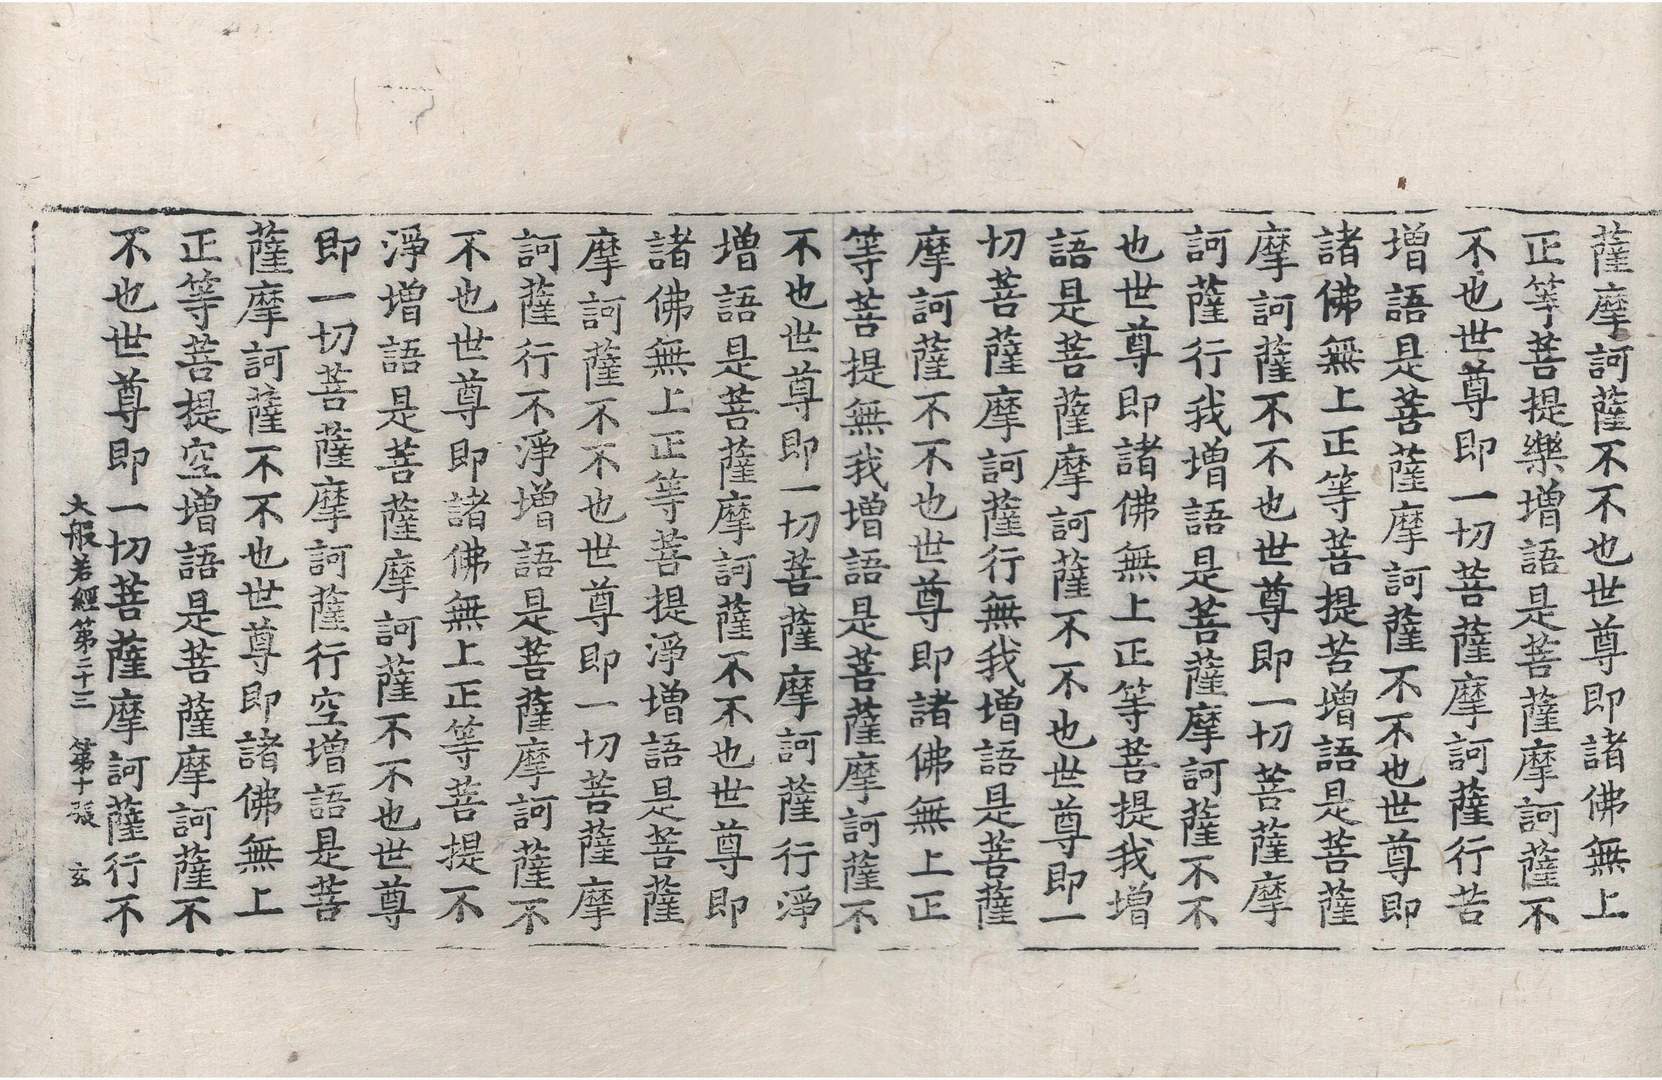 薩摩訶薩不不也世尊即諸佛無上
正等菩提樂增語是菩薩摩訶薩不
不也世尊即一切菩薩摩訶薩行苦
增語是菩薩摩訶薩不不也世尊即
諸佛無上正等菩提苦增語是菩薩
摩訶薩不不也世尊即一切菩薩摩
訶薩行我增語是菩薩摩訶薩不不
也世尊即諸佛無上正等菩提我增
語是菩薩摩訶薩不不也世尊即一
切菩薩摩訶薩行無我增語是菩薩
摩訶薩不不也世尊即諸佛無上正
等菩提無我增語是菩薩摩訶薩不
不也世尊即一切菩薩摩訶薩行淨
增語是菩薩摩訶薩不不也世尊即
諸佛無上正等菩提淨增語是菩薩
摩訶薩不不也世尊即一切菩薩摩
訶薩行不淨增語是菩薩摩訶薩不
不也世尊即諸佛無上正等菩提不
淨增語是菩薩摩訶薩不不也世尊
即一切菩薩摩訶薩行空增語是菩
薩摩訶薩不不也世尊即諸佛無上
正等菩提空增語是菩薩摩訶薩不
不也世尊即一切菩薩摩訶薩行不
大般若經第二十三 第十張 玄